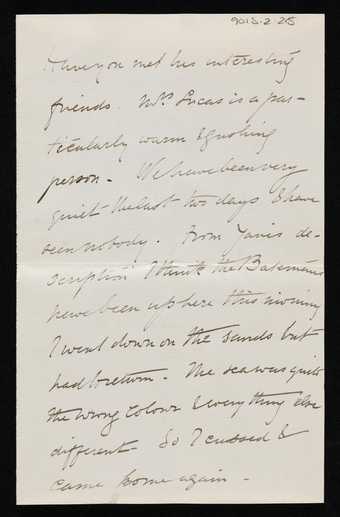 9013.2.25
Have you met his interesting
friends. Mrs Lucas is a par-
ticularly warm & gushing
person - We have been very
quiet the last two days & have
seen nobody. From Janis de-
scription I think the Batemans
have been up here this morning
I went down on the sands but
had to return - The sea was quite
the wrong colour & everything else
different So I cussed &
came home again -